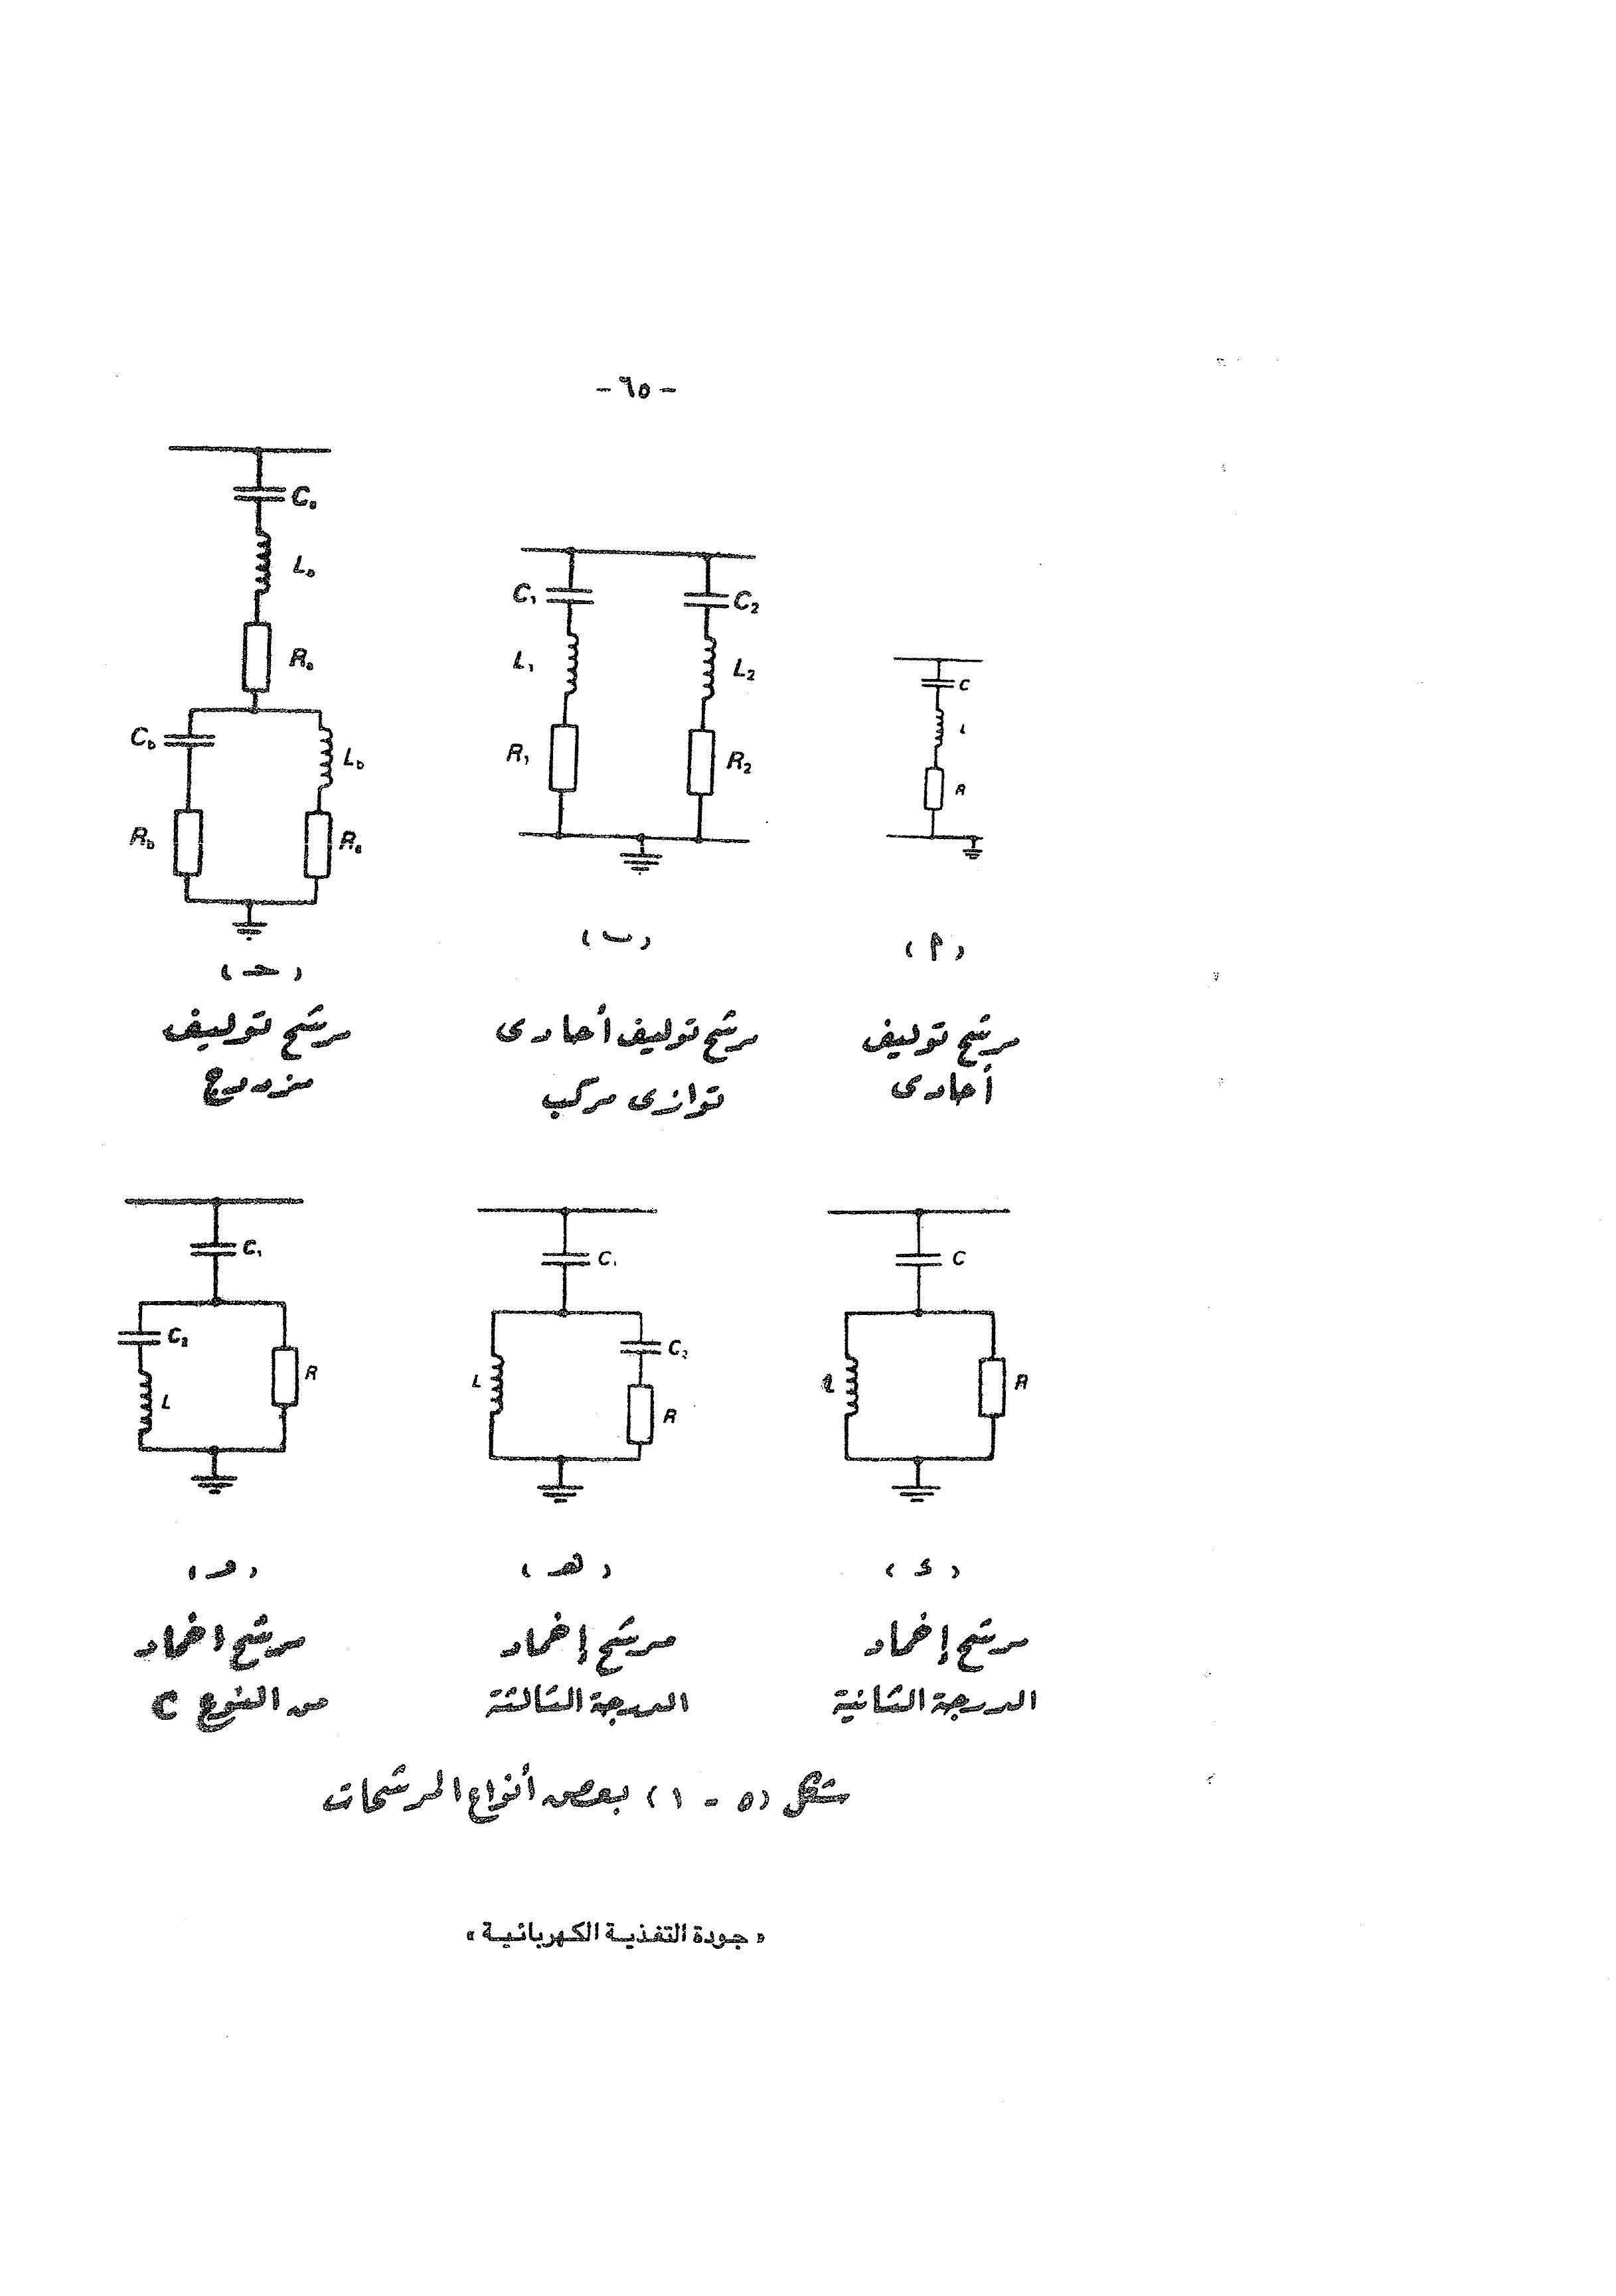 - ٦٥ -
C
L
R
(أ)
مرشح توليف
أحادى
C₁
L₁
R₁
C₂
L₂
R₂
(ب)
مرشح توليف أحادى
توازى مركب
Cₐ
Lₐ
Rₐ
C_b
R_b
L_b
(حـ)
مرشح توليف
مزدوج
C
L
R
(د)
مرشح إخماد
الدرجة الثانية
C₁
L
C₂
R
(هـ)
مرشح إخماد
الدرجة الثالثة
C₁
C₂
L
R
(و)
مرشح اخماد
من النوع C
شكل (٥ - ١) بعض أنواع المرشحات
«جودة التغذية الكهربائية»